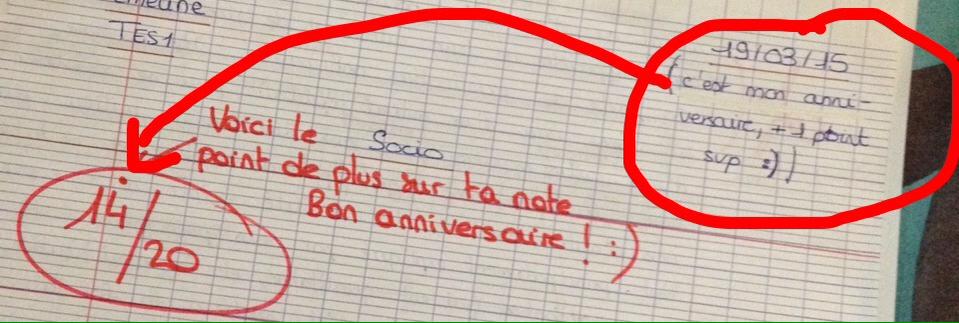 TES1
19/03/15
(c'est mon anni-
versaire, + 1 point
sup :) )
Socio
Voici le
point de plus sur ta note
Bon anniversaire ! :)
14/20